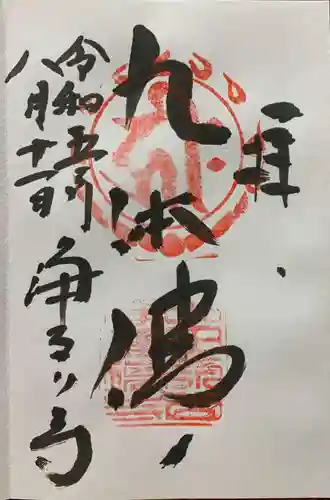 拝
九体佛
令和五年
八月十一日
浄るり寺